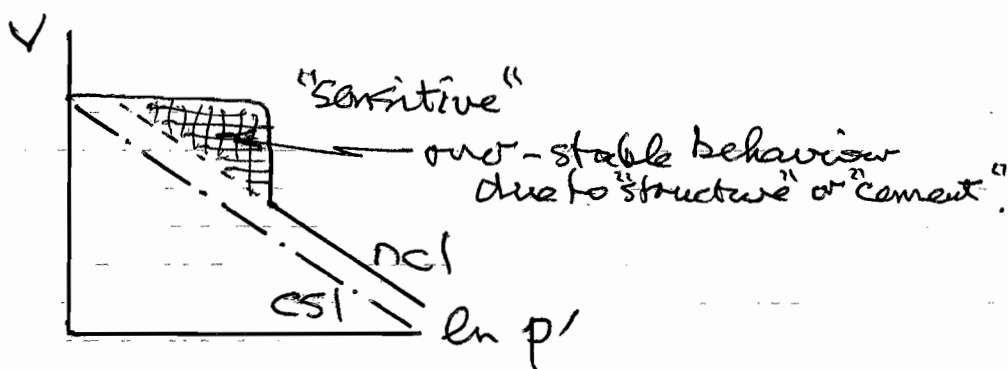 V
"Sensitive"
over-stable behaviour
due to "structure" or "cement".
ncl
csl
ln p'